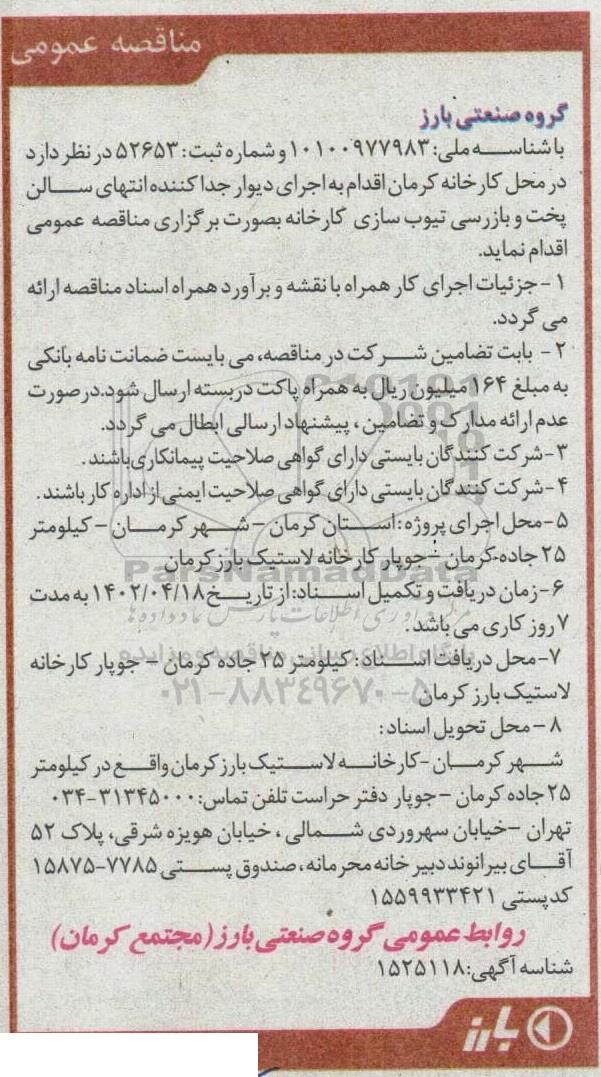 مناقصه عمومی
گروه صنعتی بارز
با شناســـه ملی: ۱۰۱۰۰۹۷۷۹۸۳ و شماره ثبت: ۵۲۶۵۳ در نظر دارد
در محل کارخانه کرمان اقدام به اجرای دیوار جدا کننده انتهای ســـالن
پخت و بازرسی تیوب سازی کارخانه بصورت برگزاری مناقصه عمومی
اقدام نماید.
۱- جزئیات اجرای کار همراه با نقشه و برآورد همراه اسناد مناقصه ارائه
می گردد.
۲- بابت تضامین شـــرکت در مناقصه، می بایست ضمانت نامه بانکی
به مبلغ ۱۶۴ میلیون ریال به همراه پاکت دربسته ارسال شود.در صورت
عدم ارائه مدارک و تضامین ، پیشنهاد ارسالی ابطال می گردد.
۳-شرکت کنندگان بایستی دارای گواهی صلاحیت پیمانکاری باشند .
۴-شرکت کنندگان بایستی دارای گواهی صلاحیت ایمنی از اداره کار باشند .
۵-محل اجرای پروژه: اســـتان کرمان – شـــهر کرمـــان – کیلومتر
۲۵ جاده کرمان –جوپار کارخانه لاستیک بارز کرمان
ParsNamadData
۶-زمان دریافت و تکمیل اســـناد: از تاریـــخ ۱۴۰۲/۰۴/۱۸ به مدت
۷ روز کاری می باشد .
پایگاه اطلاع رسانی مناقصه و مزایده
۷-محل دریافت اســـناد : کیلومتر ۲۵ جاده کرمان – جوپار کارخانه
۰۲۱-۸۸۳۴۹۶۷۰-۵
لاستیک بارز کرمان
۸ – محل تحویل اسناد :
شـــهر کرمـــان -کارخانـــه لاســـتیک بارز کرمان واقـــع در کیلومتر
۲۵ جاده کرمان – جوپار دفتر حراست تلفن تماس: ۳۱۳۴۵۰۰۰-۰۳۴
تهران –خیابان سهروردی شـــمالی ، خیابان هویزه شرقی، پلاک ۵۲
آقـــای بیرانوند دبیر خانه محرمانه ، صندوق پســـتی ۷۷۸۵-۱۵۸۷۵
کدپستی ۱۵۵۹۹۳۳۴۲۱
روابط عمومی گروه صنعتی بارز (مجتمع کرمان)
شناسه آگهی: ۱۵۲۵۱۱۸
بارز